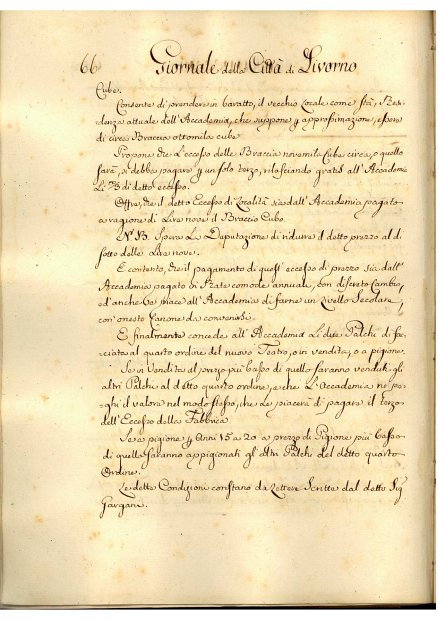 66 Giornale della Città di Livorno
Cube.
Consente di prendere in baratto, il vecchio Locale come stà, Resi-
denza attuale dell'Accademia, che suppone p approssimazione, essere
di circa Braccia ottomila cube
Propone che L'eccesso delle Braccia novemila Cube circa, o quello
sarà, si debba pagare p un solo terzo, rilasciando gratis all'Accademia
di detto eccesso.
Offre, che il detto Eccesso di Località sia dall'Accademia pagato
a ragione di Lire nove il Braccio Cubo.
N.B. Spera La Deputazione di ridurre il detto prezzo al di
sotto delle Lire nove.
È contento, che il pagamento di quest'eccesso di prezzo sia dall'
Accademia pagato in Rate comode annuali, con discreto Cambio,
ed anche se piace all'Accademia di farne un Livello Secolare,
con onesto Canone da convenirsi.
E finalmente concede all'Accademia Li dice Palchi di fac-
ciata al quarto ordine del nuovo Teatro, o in vendita, o a pigione.
Se in Vendita al prezzo più basso di quello saranno venduti gli
altri Palchi al detto quarto ordine, e che L'Accademia ne pa-
ghi il valore nel modo stesso, che Le piacerà di pagare il terzo
dell'Eccesso della Fabbrica
Se a pigione p Anni 15 a 20 a prezzo di Pigione più basso
di quello saranno appigionati gli altri Palchi del detto quarto
Ordine.
Le dette Condizioni constano da Lettere Scritte dal detto Sig
Gargani.